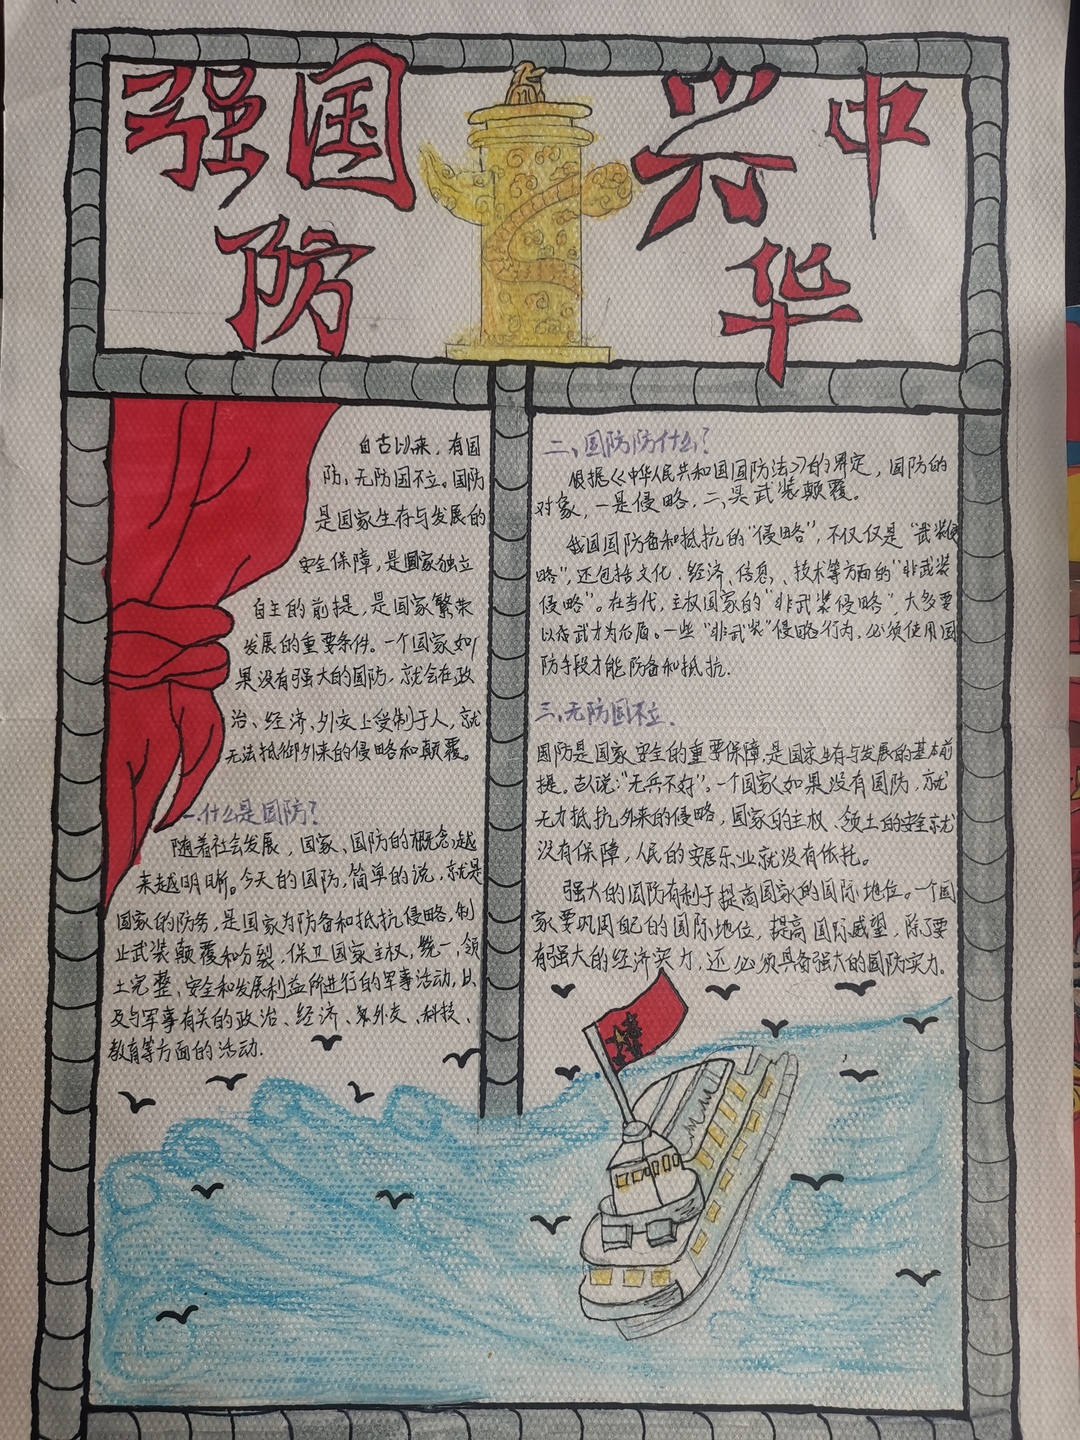 强国
防
兴中
华
自古以来，有国
防，无防国不立。国防
是国家生存与发展的
安全保障，是国家独立
自主的前提，是国家繁荣
发展的重要条件。一个国家如
果没有强大的国防，就会在政
治、经济、外交上受制于人，就
无法抵御外来的侵略和颠覆。
一.什么是国防？
随着社会发展，国家、国防的概念越
来越明晰。今天的国防，简单的说，就是
国家的防务，是国家为防备和抵抗侵略，制
止武装颠覆和分裂，保卫国家主权，统一，领
土完整、安全和发展利益所进行的军事活动，以
及与军事有关的政治、经济、外交、科技、
教育等方面的活动.
二、国防防什么？
根据《中华人民共和国国防法》的界定，国防的
对象，一是侵略，二是武装颠覆。
我国国防备和抵抗的“侵略”，不仅仅是“武装侵
略”，还包括文化、经济、信息、技术等方面的“非武装
侵略”。在当代，主权国家的“非武装侵略”，大多要
以武力为后盾。一些“非武装”侵略行为，必须使用国
防手段才能防备和抵抗.
三、无防国不立.
国防是国家安全的重要保障，是国家生存与发展的基本前
提。古人说：“无兵不好”。一个国家如果没有国防，就
无力抵抗外来的侵略，国家的主权、领土的安全就
没有保障，人民的安居乐业就没有依托。
强大的国防有利于提高国家的国际地位。一个国
家要巩固自己的国际地位，提高国际威望，除了要
有强大的经济实力，还必须具备强大的国防实力.